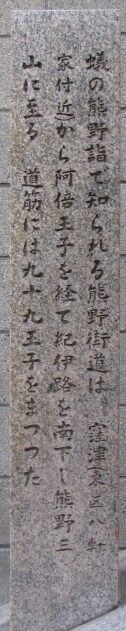 蟻の熊野詣で知られる熊野街道は 窪津(東区八軒
家付近から阿倍王子を経て紀伊路を南下し熊野三
山に至る 道筋には九十九王子をまつつた